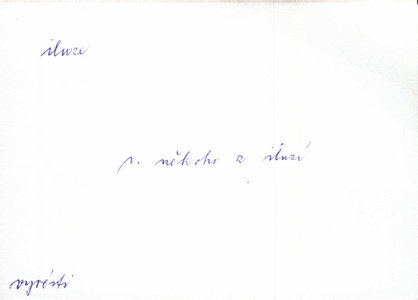 iluze
v. někoho z iluzí
vyvésti